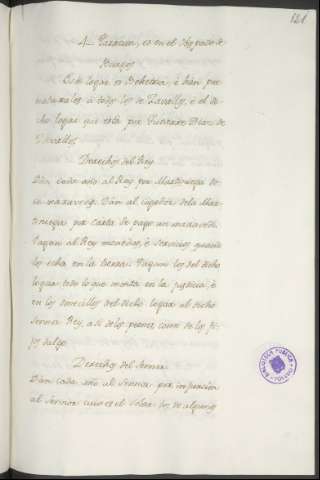 121
4_ Taracon, es en el Obispado de
Burgos
Este logar es Behetria, è han por
naturales à todos los de Zavallos, è el di-
cho logar que està por Gutierre Diaz de
Zevallos
Derechos del Rey
Dàn cada año al Rey por Martiniega do-
ce maravedis. Dàn al cogedor dela Mar-
tiniega por carta de pago un maravedi.
Pagan al Rey monedas, è servicios quando
los echa en la tierra. Pagan los del dicho
logar todo lo que monta en la justicia, è
en los omecillos del dicho logar al dicho
Señor Rey, asi de los pecheros como de los fi-
jos dalgo
Derechos del Señor
Dàn cada año al Señor por infurcion
al Señor cuio es el Solar dos de algunos
BIBLIOTECA PUBLICA
TOLEDO